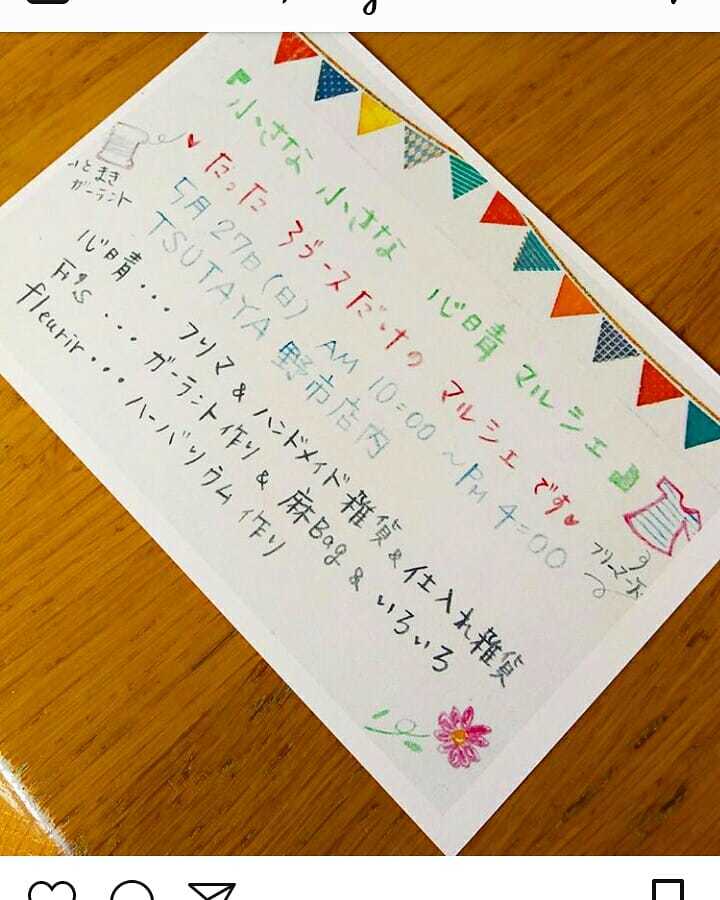 『小さな 小さな 心晴 マルシェ』
♥たった 3ブースだけの マルシェです♥
5月27日(日) AM 10:00 ~PM 4:00
TSUTAYA 野市店内
心晴・・・フリマ & ハンドメイド雑貨 & 仕入れ雑貨
Fi's ・・・ガーラント作り & 麻Bag & いろいろ
fleurir・・・ハーバリウム作り
いとまき
ガーラント